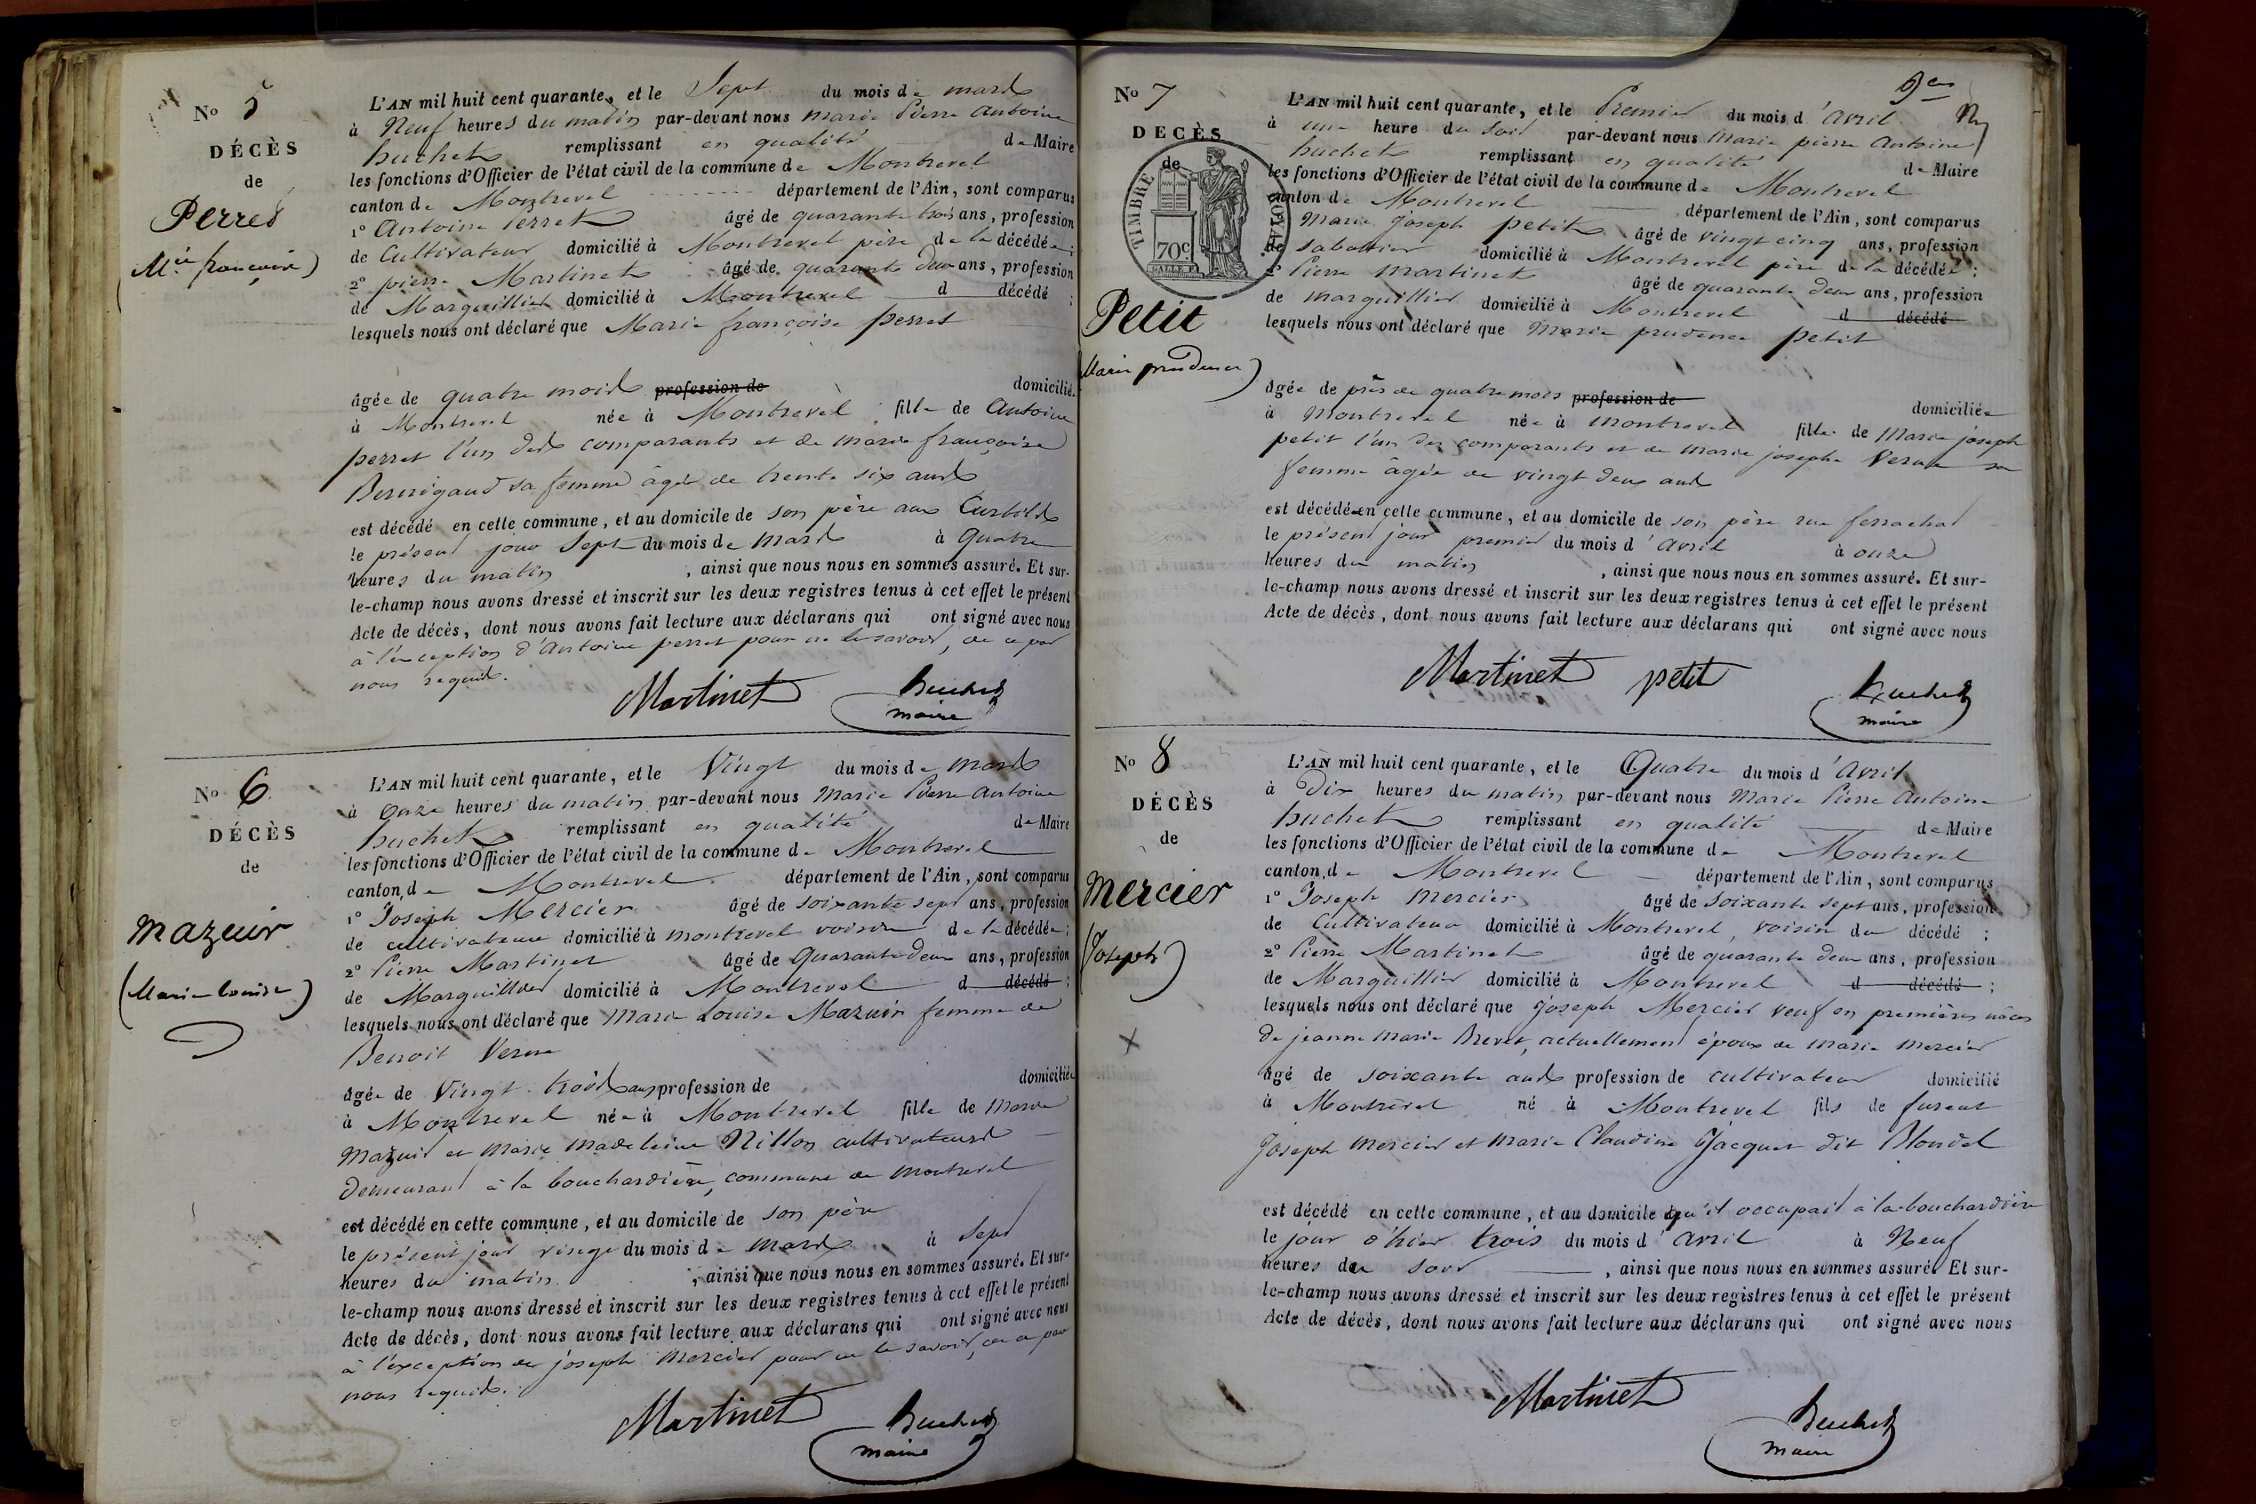 No 5
DÉCÈS
de
Perret
(Mie françoise)
L'AN mil huit cent quarante, et le Sept du mois de mars
à Neuf heures du matin par-devant nous marie Pierre Antoine
huchet remplissant en qualité de Maire
les fonctions d'Officier de l'état civil de la commune de Montrevel
canton de Montrevel département de l'Ain, sont comparus
1o Antoine Perret âgé de quarante trois ans, profession
de Cultivateur domicilié à Montrevel père de la décédée ;
2o pierre Martinet âgé de quarante deux ans, profession
de Marguillier domicilié à Montrevel d décédé ;
lesquels nous ont déclaré que Marie françoise perret
âgée de quatre mois profession de domiciliée
à Montrevel née à Montrevel fille de Antoine
perret l'un des comparants et de marie françoise
sa femme âgée de trente six ans
est décédé en cette commune, et au domicile de son père aux
le présent jour Sept du mois de mars à quatre
heures du matin , ainsi que nous nous en sommes assuré. Et sur-
le-champ nous avons dressé et inscrit sur les deux registres tenus à cet effet le présent
Acte de décès, dont nous avons fait lecture aux déclarans qui ont signé avec nous
à l'exception d'Antoine perret pour ne le savoir, de ce par
nous requis.
Martinet huchet
maire
No 6
DÉCÈS
de
Mazuir
(Marie Louise)
L'AN mil huit cent quarante, et le Vingt du mois de mars
à Onze heures du matin par-devant nous Marie Pierre Antoine
huchet remplissant en qualité de Maire
les fonctions d'Officier de l'état civil de la commune de Montrevel
canton de Montrevel département de l'Ain, sont comparus
1o Joseph Mercier âgé de soixante sept ans, profession
de cultivateur domicilié à montrevel voisin de la décédée ;
2o Pierre Martinet âgé de quarante deux ans, profession
de Marguillier domicilié à Montrevel d décédé ;
lesquels nous ont déclaré que Marie Louise Mazuir femme de
Benoit Verne
âgée de Vingt trois ans profession de domiciliée
à Montrevel née à Montrevel fille de
Mazuir et Marie Madeleine Nillon cultivateurs
demeurant à la bouchardière, commune de Montrevel
est décédé en cette commune, et au domicile de son père
le présent jour vingt du mois de Mars à Sept
heures du matin , ainsi que nous nous en sommes assuré. Et sur-
le-champ nous avons dressé et inscrit sur les deux registres tenus à cet effet le présent
Acte de décès, dont nous avons fait lecture aux déclarans qui ont signé avec nous
à l'exception de joseph Mercier pour ne le savoir, de ce par
nous requis.
Martinet huchet
maire
No 7
DECÈS
de
TIMBRE ROYAL
70c
Petit
(Marie prudence)
L'AN mil huit cent quarante, et le Premier du mois d'avril
à une heure du soir par-devant nous marie pierre Antoine
huchet remplissant en qualité de Maire
les fonctions d'Officier de l'état civil de la commune de Montrevel
canton de Montrevel département de l'Ain, sont comparus
1o Marie joseph petit âgé de vingt cinq ans, profession
de sabotier domicilié à Montrevel père de la décédée ;
2o Pierre Martinet âgé de quarante deux ans, profession
de marguillier domicilié à Montrevel d décédé
lesquels nous ont déclaré que Marie prudence petit
âgée de près de quatre mois profession de domiciliée
à Montrevel née à Montrevel fille de Marie joseph
petit l'un des comparants et de marie josephe Verne sa
femme âgée de vingt deux ans
est décédée en cette commune, et au domicile de son père rue
le présent jour premier du mois d'avril à onze
heures du matin , ainsi que nous nous en sommes assuré. Et sur-
le-champ nous avons dressé et inscrit sur les deux registres tenus à cet effet le présent
Acte de décès, dont nous avons fait lecture aux déclarans qui ont signé avec nous
Martinet petit huchet
maire
No 8
DÉCÈS
de
Mercier
(Joseph)
L'AN mil huit cent quarante, et le Quatre du mois d'avril
à Dix heures du matin par-devant nous Marie Pierre Antoine
huchet remplissant en qualité de Maire
les fonctions d'Officier de l'état civil de la commune de Montrevel
canton de Montrevel département de l'Ain, sont comparus
1o Joseph Mercier âgé de soixante sept ans, profession
de Cultivateur domicilié à Montrevel, voisin du décédé ;
2o Pierre Martinet âgé de quarante deux ans, profession
de Marguillier domicilié à Montrevel d décédé ;
lesquels nous ont déclaré que joseph Mercier veuf en premières nôces
de jeanne Marie Brevet, actuellement époux de Marie Mercier
âgé de soixante ans profession de cultivateur domicilié
à Montrevel né à Montrevel fils de furent
Joseph Mercier et Marie Claudine Jacquet dit Blondel
est décédé en cette commune, et au domicile qu'il occupait à la bouchardière
le jour d'hier trois du mois d'avril à Neuf
heures du soir , ainsi que nous nous en sommes assuré. Et sur-
le-champ nous avons dressé et inscrit sur les deux registres tenus à cet effet le présent
Acte de décès, dont nous avons fait lecture aux déclarans qui ont signé avec nous
Martinet huchet
maire